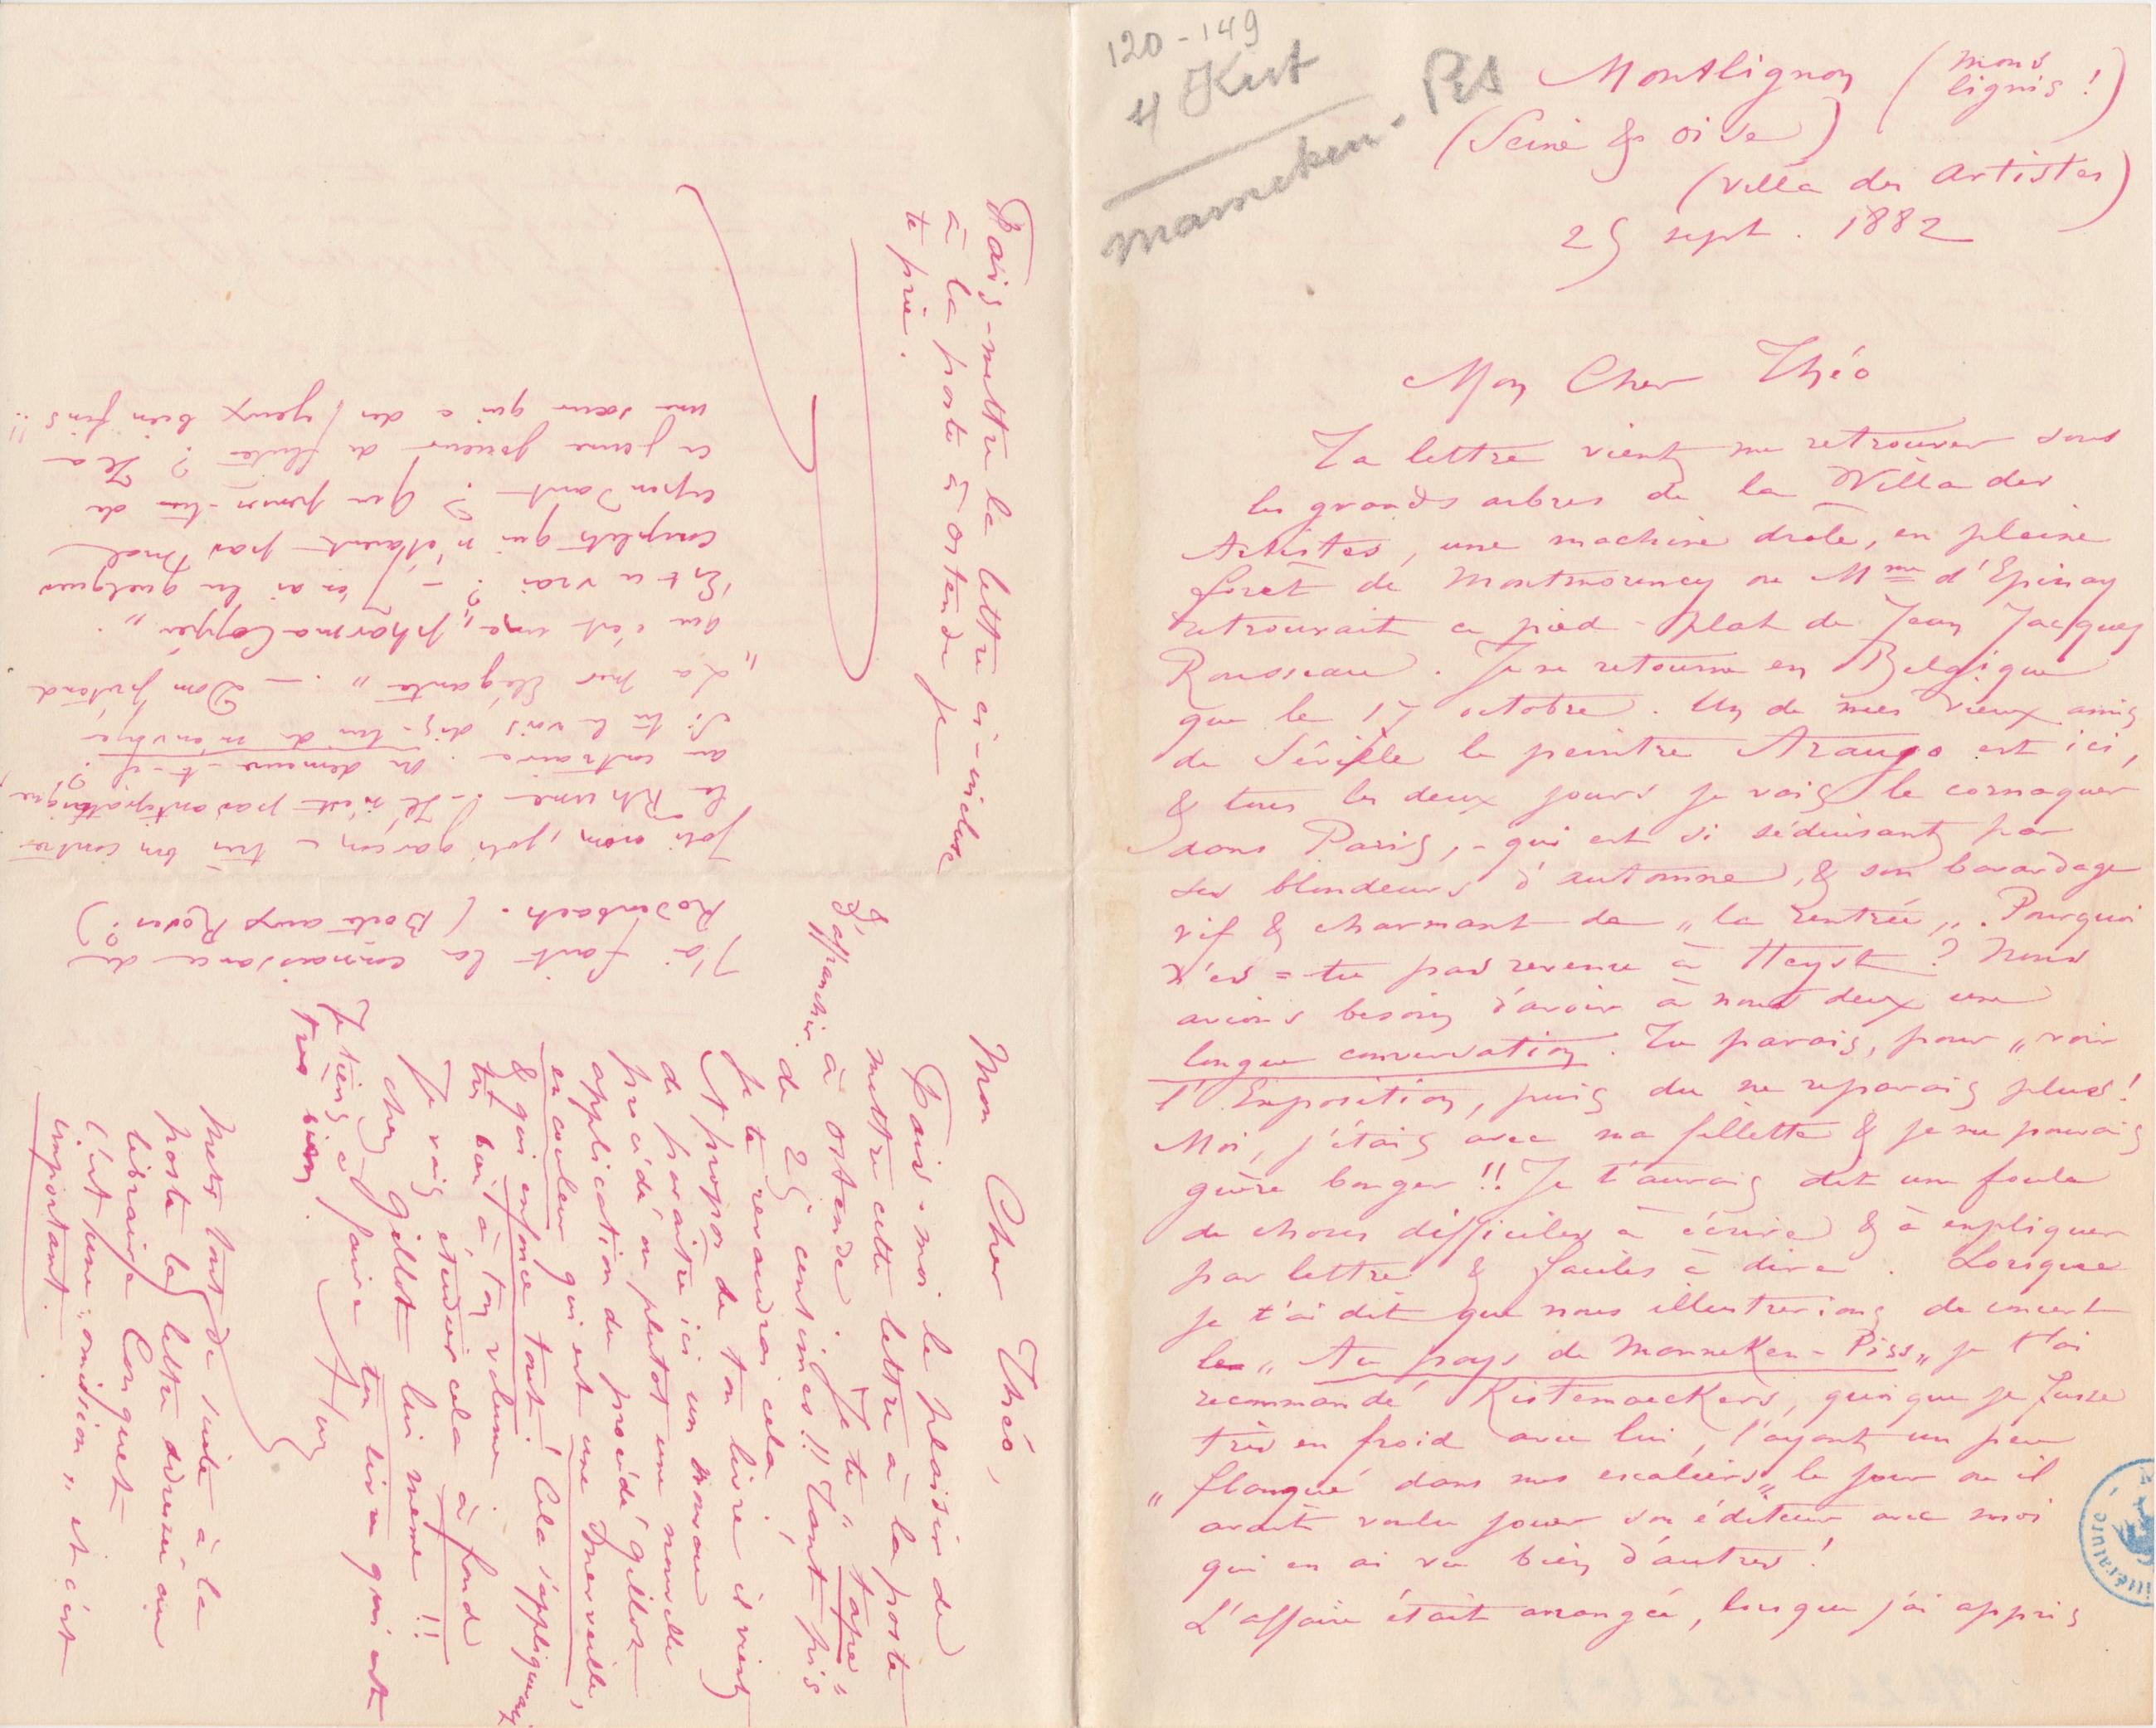 120-149
4 Kist
manneken-Pis
Montlignon (mons
lignis !)
(Seine & oise)
(villa des Artistes)
25 sept. 1882
Mon Cher Théo
Ta lettre vient me retrouver sous
les grands arbres de la Villa des
Artistes, une machine drôle, en pleine
forêt de Montmorency ou Mme d'Epinay
retrouvait ce pied-plat de Jean Jacques
Rousseau. Je ne retourne en Belgique
que le 17 octobre. Un de mes vieux amis
de Séville le peintre Araujo est ici,
& tous les deux jours je vais le cornaquer
dans Paris, - qui est si séduisant par
ses blondeurs d'automne, & son bavardage
vif & charmant de „la rentrée„. Pourquoi
n'es=tu pas revenu à Heyst ? Nous
avions besoin d'avoir à nous deux une
longue conversation. Tu parais, pour „voir
l'Exposition, puis du ne reparais plus !
Moi, j'étais avec ma fillette & je ne pouvais
guère bouger !! Je t'aurais dit une foule
de choses difficiles à écrire & à expliquer
par lettre & faciles à dire. Lorsque
je t'ai dit que nous illustrerions de concert
le „Au pays de Manneken-Piss„ je t'ai
recommandé Kistemaeckers, quoique je fusse
très en froid avec lui, l'ayant un peu
„flanqué dans mes escaliers„ le jour où il
avait voulu jouer son éditeur avec moi
qui en ai vu bien d'autres !
L'affaire était arrangée, lorsque j'ai appris
Fais-mettre la lettre ci-incluse
à la poste à ostende je
te prie.
Mon Cher Théo,
Fais-moi le plaisir de
mettre cette lettre à la poste
à ostende. Je te „tape„
de 25 centimes !! Tant pis
Je te revaudrai cela !
A propos de ton livre il vient
de paraître ici un nouveau
procédé ou plutot une nouvelle
application du procédé gillot
en couleur qui est une merveille,
& qui enfonce tout ! Cela s'appliquerait
très bien à ton volume.
Je vais étudier cela à fond
chez gillot lui même !!
Je tiens à faire ton livre qui est
très bien.
Mets tout de suite à la
poste la lettre adressée au
libraire Conquet
C'est une „omission„ et c'est
important.
J'ai fait la connaissance de
Rodenbach. (Boit aux Roses ?)
Joli nom, joli garçon & très bon contre
le Rhume. - Il n'est pas antipathique
au contraire. Où demeure-t-il ?
Si tu le vois, dis-lui de m'envoyer
„La mer Elégante„ — Dom prétend
que c'est une „pharmaCoppée„.
Est ce vrai ? — J'en ai lu quelques
couplets qui n'étaient pas mal
cependant ? Qu'en penses-tu de
ce jeune joueur de flute ? Il a
une sœur qui a des yeux bien fins !!